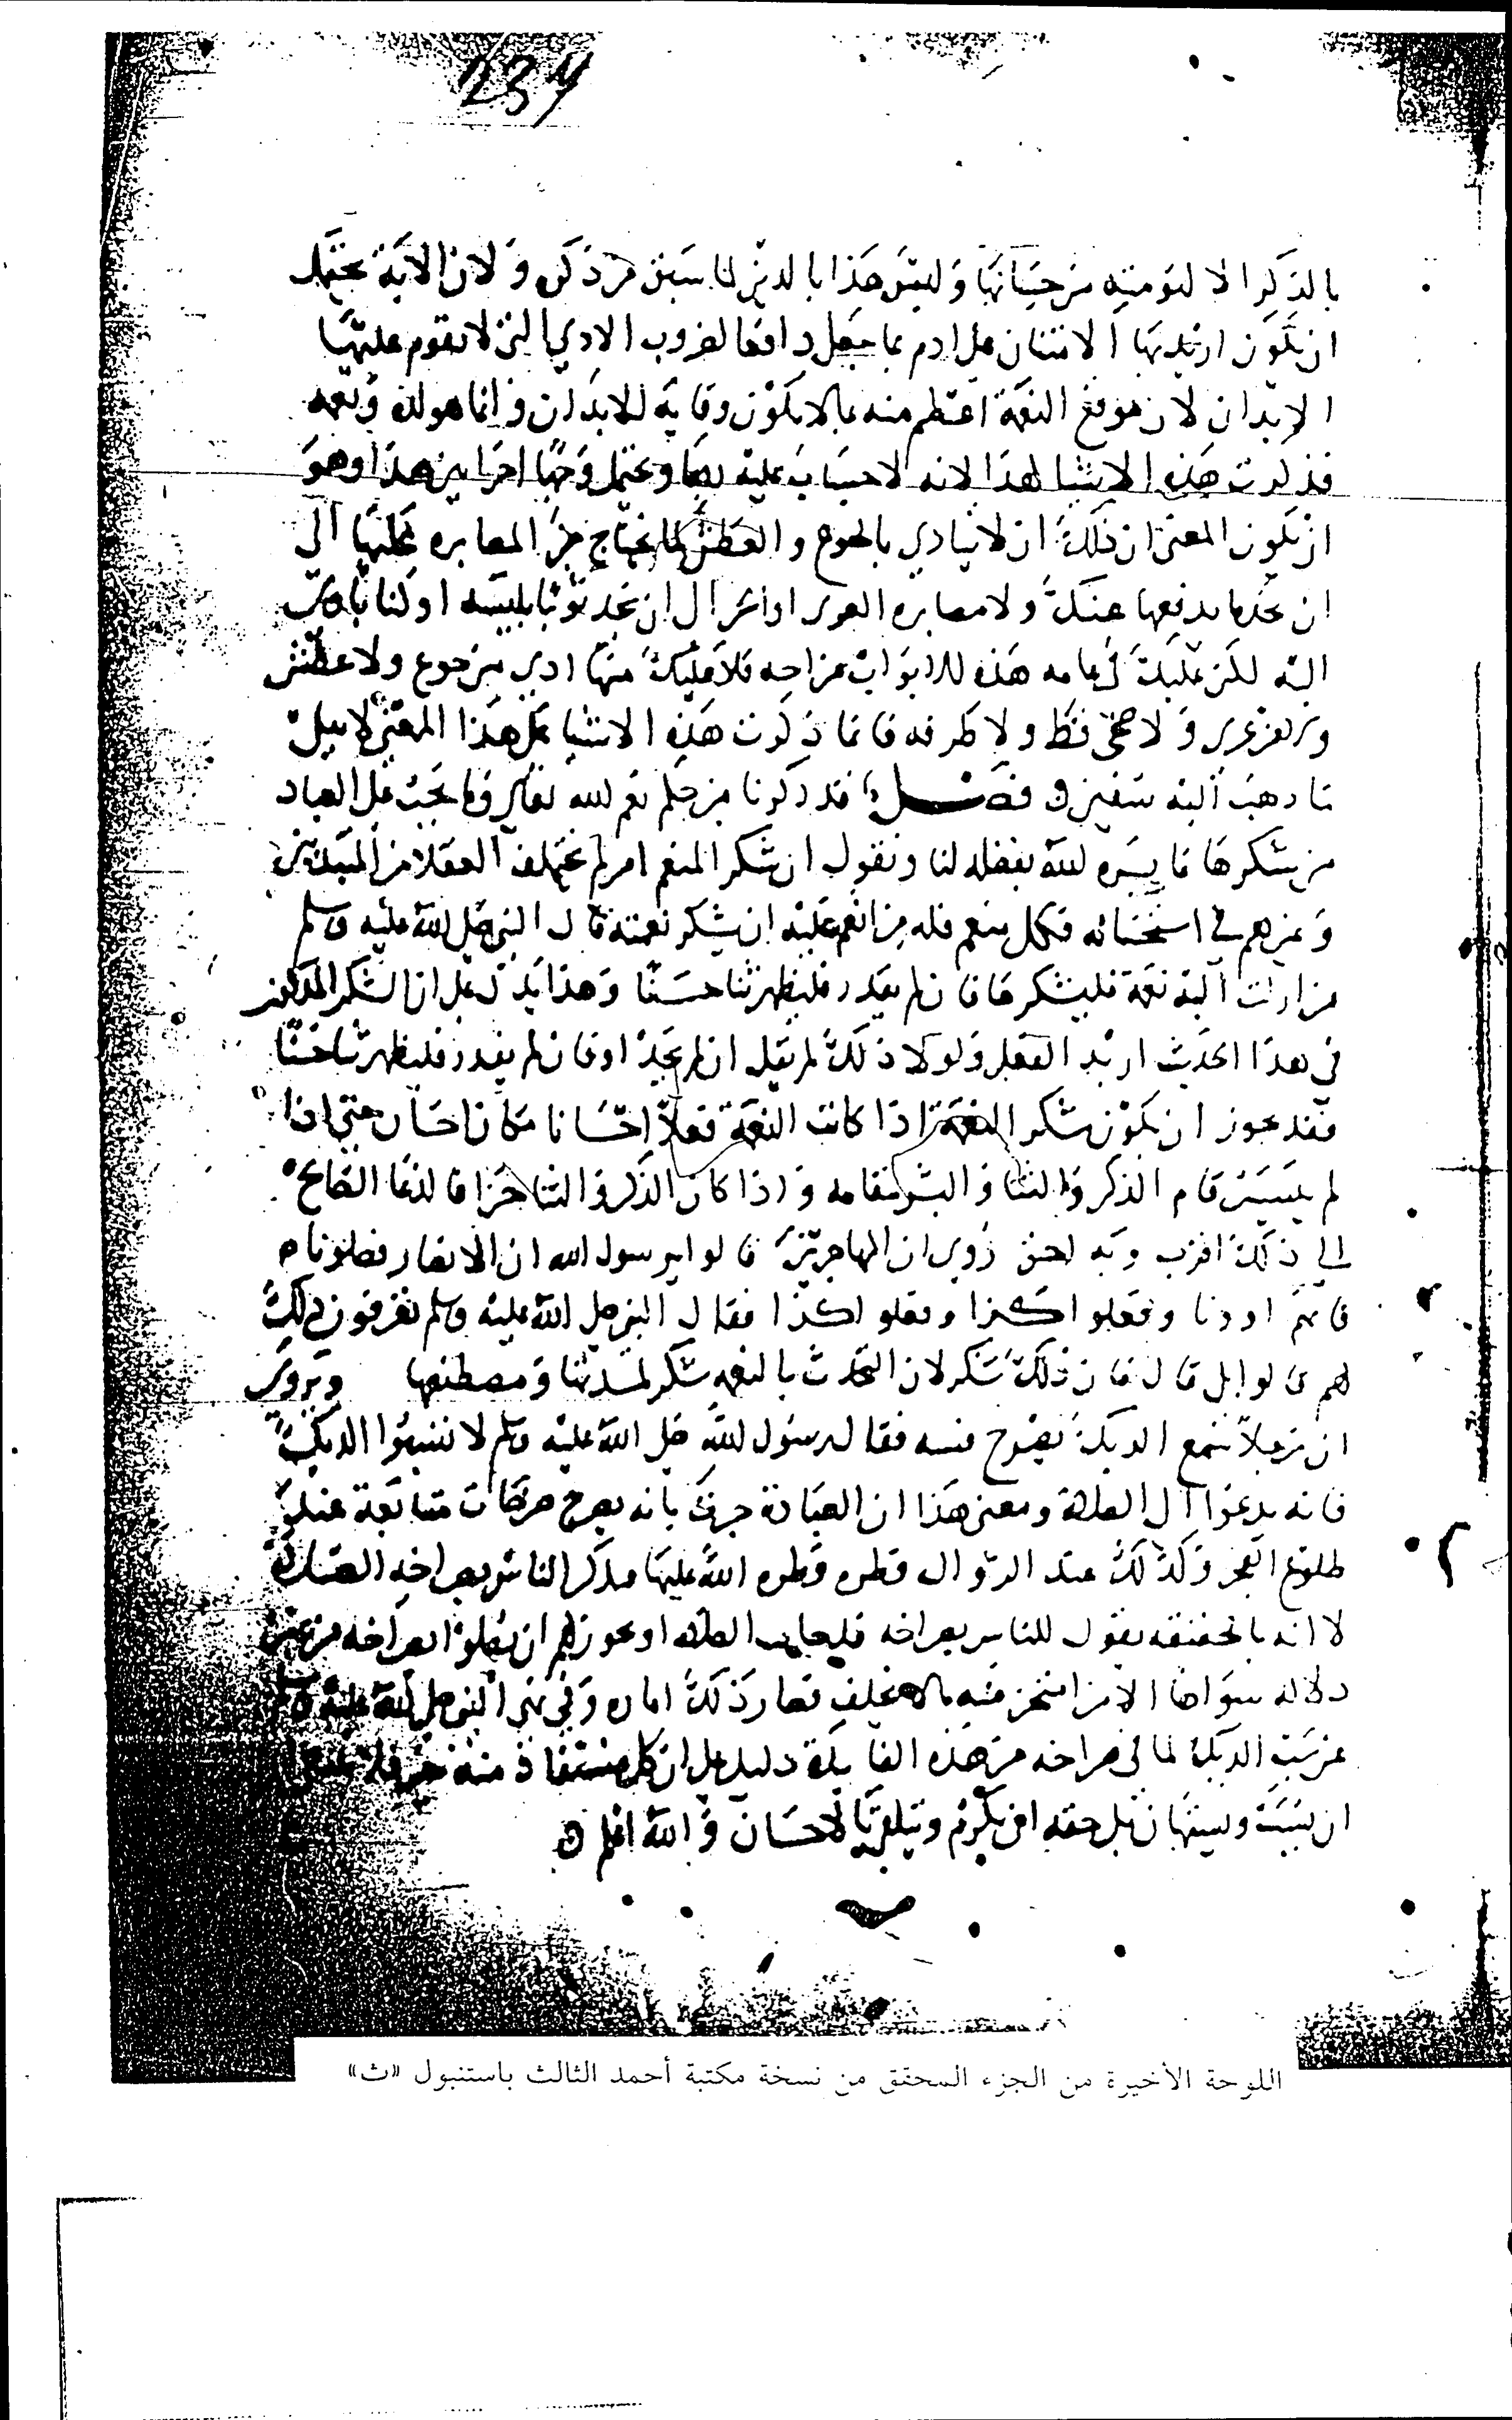 237
بالذكر الا لتومته من حسابها وليس هذا بالدين لما سبق من ذكره ولان الآية تحتمل
ان يكون اريد بها الامتنان على ادم بما جعل دافعا لضروب الاذي التي لا تقوم عليها
الابدان لان موقع النعمة اعظم منه بما لا يكون وقاية للابدان وانما هو لذة ونعمة
فذكرت هذه الاشيا لهذا لانه لا حساب عليه بها ويحتمل وجها اخرا من هذا وهو
ان يكون المعنى ان ذلك ان لا تتاذي بالجوع والعطش لما تحتاج من المصابرة عليها الى
ان تجد ما يدفعها عنك ولا مصابره العرى اذا عر الى ان تجد ثوبا تلبسه او كنا تاوى
اليه لكن عليك هذه الابواب مزاحه فلا عليك منها اذي من جوع ولا عطش
ولا عري ولا ضحى قط ولا طرفه فانما ذكرت هذه الاشيا على هذا المعنى لا على
ما ذهب اليه سفين فصل قد ذكرنا من حكم نعم الله تعالى وما يجب على العباد
من شكرها ما يسره الله بفضله لنا ونقول ان شكر المنعم امر لم يختلف العقلا من المتدينين
وغيرهم في استحسانه فكل منعم فله من انعم عليه ان يشكر نعمته قال النبي صلى الله عليه وسلم
من ازلت اليه نعمة فليشكرها فان لم يقدر فليظهر ثنا حسنا وهذا يدل على ان الشكر المذكور
في هذا الحديث اريد الفعل ولولا ذلك لم يقل ان لم يجد او فان لم يقدر فليظهر ثنا حسنا
فقد يجوز ان يكون شكر النعمة اذا كانت النعمة فعلا احسانا مكان احسان حتى اذا
لم يتيسر قام الذكر والثنا والبشر مقامه واذا كان الذكر والثنا جزا فالدعا الصالح
الى ذلك اقرب وبه احق روي ان المهاجرين قالوا يرسول الله ان الانصار فضلونا
فانهم اوونا وفعلوا كذا وفعلوا كذا فقال النبي صلى الله عليه وسلم تعرفون ذلك
لهم قالوا بلى قال فان ذلك شكر لان التحدث بالنعمه شكر لمسديها ومصطنعها ويروى
ان رجلا سمع الديك يصرخ فسبه فقال رسول الله صلى الله عليه وسلم لا تسبوا الديك
فانه يدعوا الى الصلاة ومعنى هذا ان العادة جرت بانه يصرخ صرخات متتابعة عند
طلوع الفجر وكذلك عند الزوال فطره فطره الله عليها فيذكر الناس بصراخه الصلاة
لا انه بالحقيقه يقول للناس بصراخه قد حانت الصلاه او يجوز لهم ان يصلوا بصراخه من غير
دلاله سواها الا من امتحن منه ما لا يخلف فصار ذلك اماره وفي نهي النبي صلى الله عليه وسلم
عن سب الديك لما في صراخه من هذه الفايدة دليل على ان كل مستفاد منه خير فلا ينبغي
ان يسب ويستهان بل حقه ان يكرم ويتلقى بالاحسان والله اعلم
اللوحة الأخيرة من الجزء المحقق من نسخة مكتبة أحمد الثالث باستنبول «ث»